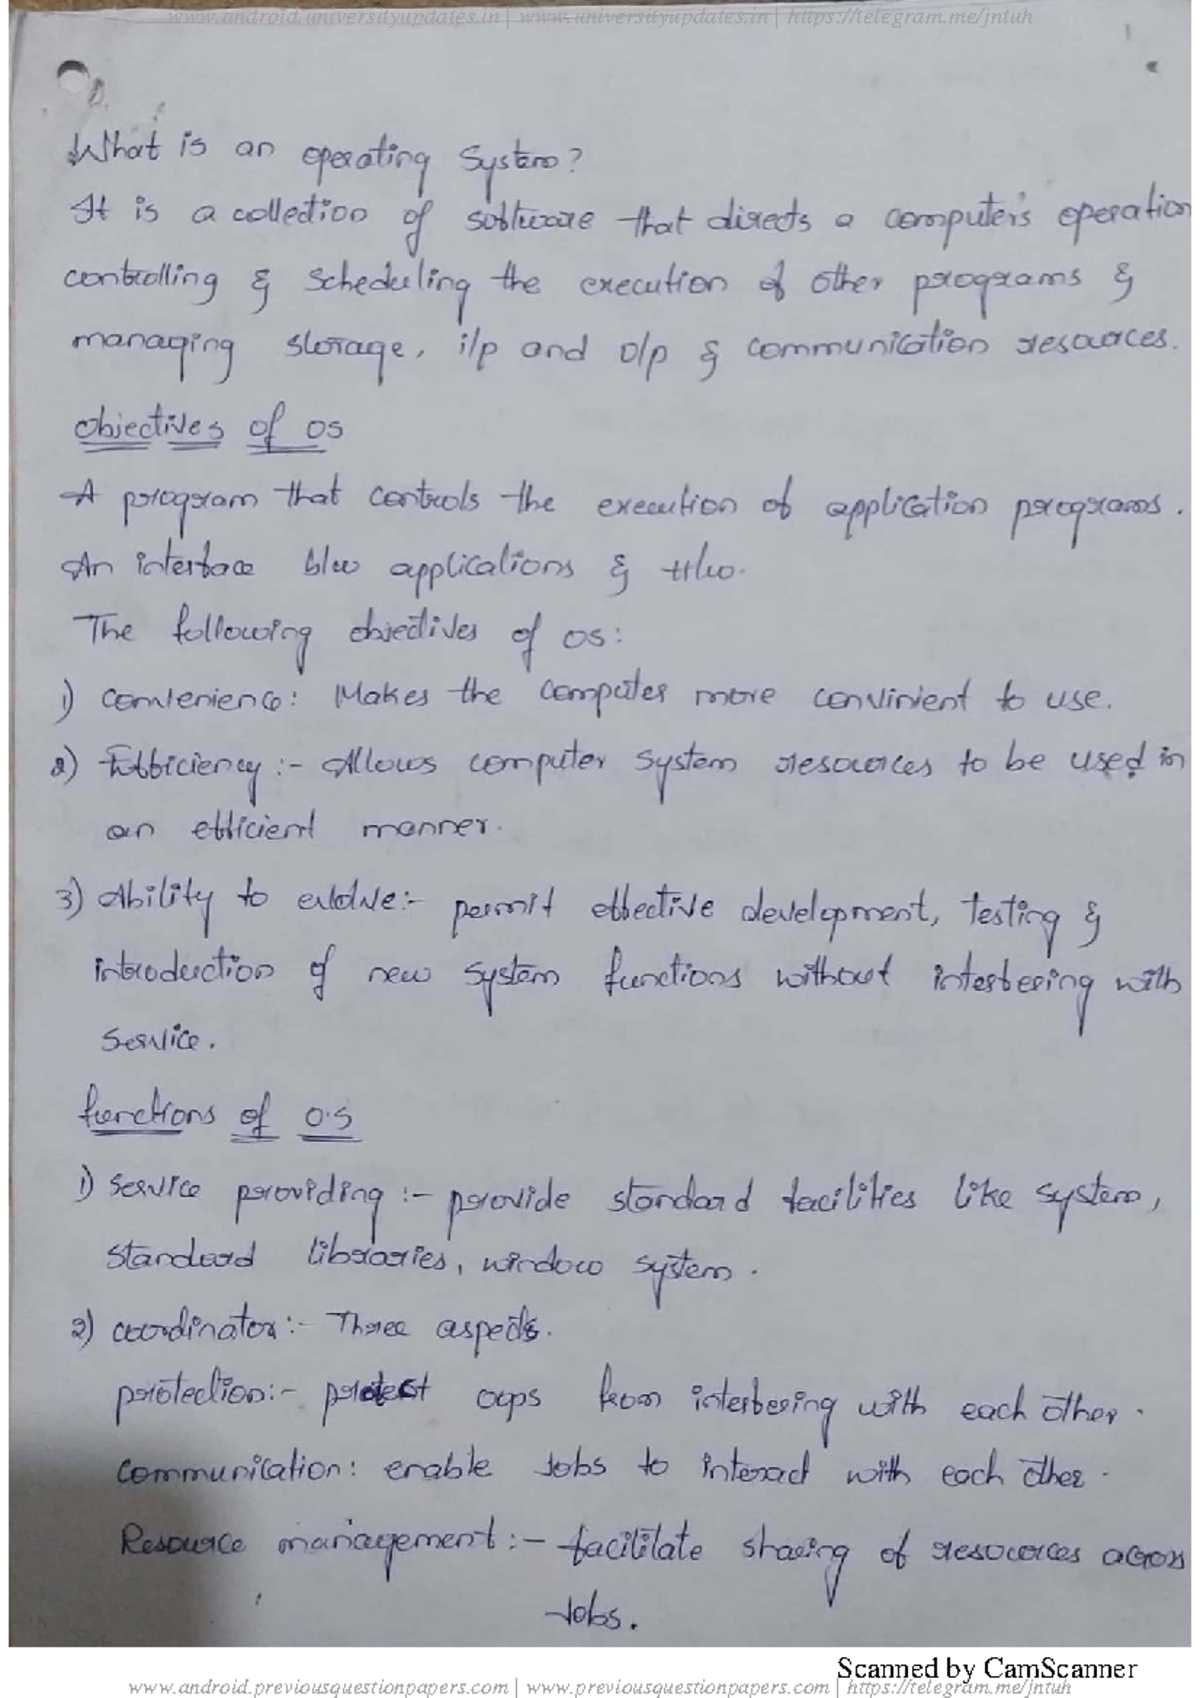 www.android.universityupdates.in | www.universityupdates.in | https://telegram.me/jntuh
1
What is an operating System?
It is a collection of software that directs a computer's operation
controlling & scheduling the execution of other programs &
managing storage, i/p and o/p & communication resources.
Objectives of OS
A program that controls the execution of application programs.
An interface b/w applications & H/w.
The following objectives of OS:
1) convenience: Makes the computer more convinient to use.
2) Efficiency :- Allows computer system resources to be used in
an efficient manner.
3) Ability to evolve:- permit effective development, testing &
introduction of new system functions without interfering with
service.
functions of O.S
1) Service providing :- provide standard facilities like system,
standard libraries, window system.
2) coordinator:- Three aspects.
protection:- protect ops from interfering with each other.
communication: enable Jobs to interact with each other.
Resource management :- facilitate sharing of resources across
Jobs.
Scanned by CamScanner
www.android.previousquestionpapers.com | www.previousquestionpapers.com | https://telegram.me/jntuh